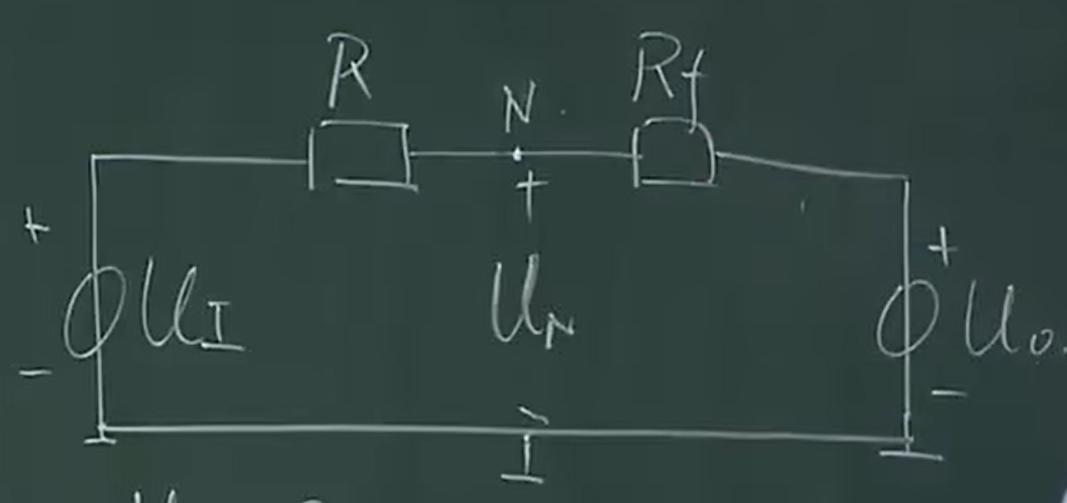 R
N
Rf
+
+
+
UI
UN
Uo.
-
-
-